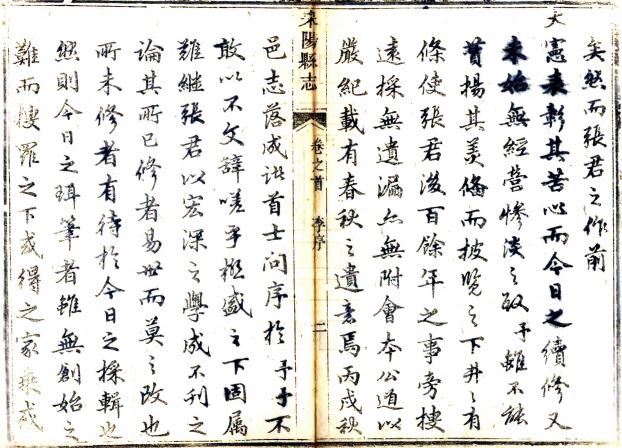 矣然而張君之作前
大憲表彰其苦心而今日之續修又
未始無經營慘淡之致予雖不能
贊揚其美備而披覽之下井井有
條使張君後百餘年之事旁搜
遠採無遺漏亦無附會本公道以
嚴紀載有春秋之遺意焉丙戌秋
耒陽縣志
卷之首 李序 二
邑志落成諸首士問序於予予不
敢以不文辭嗟乎極盛之下固属
難繼張君以宏深之學成不刊之
論其所已修者易世而莫之改也
所未修者有待於今日之採輯也
然則今日之珥筆者雖無創始之
難而搜羅之下或得之家乘或